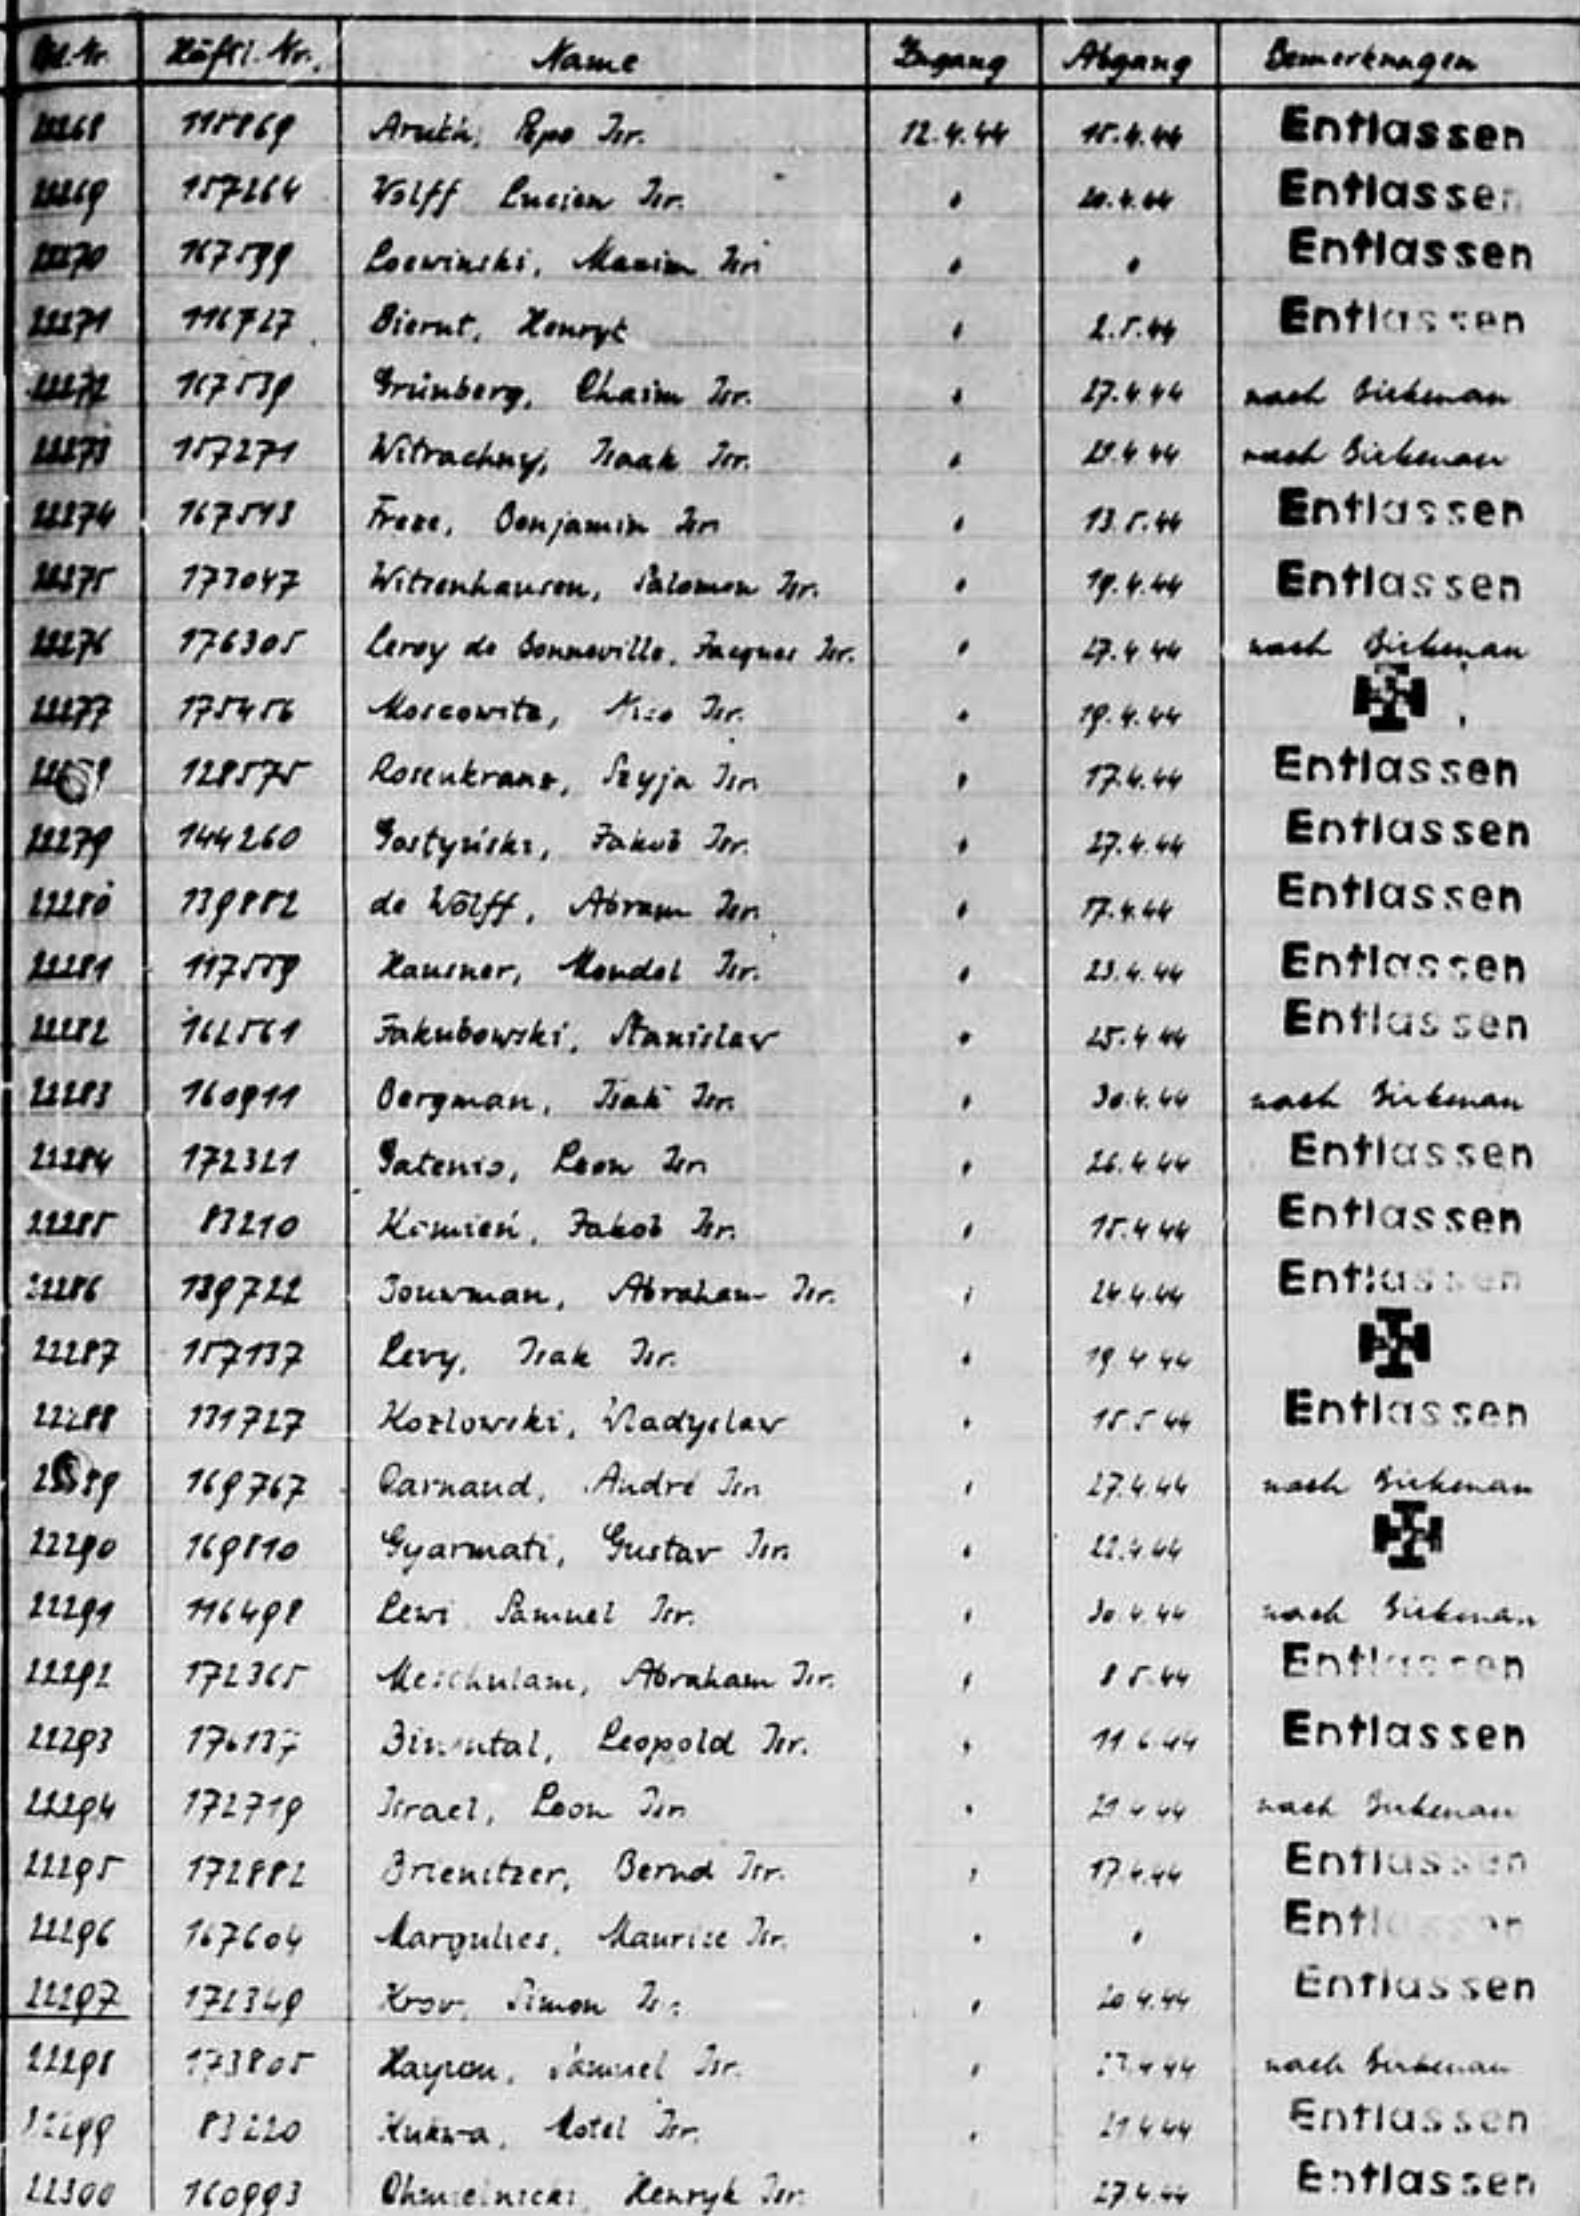 Lfd. Nr. Häftl. Nr. Name Zugang Abgang Bemerkungen
22268 115869 Pepo Isr. 12.4.44 15.4.44 Entlassen
22269 157264 Wolff Lucien Isr. " 20.4.44 Entlassen
22270 167599 Loewinski, Maxim Isr. " " Entlassen
22271 116727 Bierut, Henryk " 2.5.44 Entlassen
22272 167539 Grünberg, Chaim Isr. " 27.4.44 nach Birkenau
22273 157271 Witrachny, Isaak Isr. " 29.4.44 nach Birkenau
22274 167513 Benjamin Isr. " 13.5.44 Entlassen
22275 173047 Witzenhausen, Salomon Isr. " 19.4.44 Entlassen
22276 176305 Leroy de Bonneville, Jacques Isr. " 27.4.44 nach Birkenau
22277 175456 Moscowitz, Isr. " 19.4.44
128575 Rosenkranz, Szyja Isr. " 17.4.44 Entlassen
22279 144260 Gostyński, Jakob Isr. " 27.4.44 Entlassen
22280 139882 de Wolff, Abram Isr. " 17.4.44 Entlassen
22281 117559 Hausner, Mendel Isr. " 23.4.44 Entlassen
22282 162561 Jakubowski, Stanislaw " 25.4.44 Entlassen
22283 160911 Bergman, Isak Isr. " 30.4.44 nach Birkenau
22284 172321 Gatenio, Leon Isr. " 26.4.44 Entlassen
22285 83210 Kimień, Jakob Isr. " 15.4.44 Entlassen
22286 139722 Abraham Isr. " 24.4.44 Entlassen
22287 157137 Levy, Isak Isr. " 19.4.44
22288 131727 Kozlowski, Wladyslaw " 15.5.44 Entlassen
22289 169767 André Isr. " 27.4.44 nach Birkenau
22290 169810 Gyarmati, Gustav Isr. " 22.4.44
22291 116498 Lewi Samuel Isr. " 30.4.44 nach Birkenau
22292 172365 Meschulam, Abraham Isr. " 8.5.44 Entlassen
22293 176137 Leopold Isr. " 11.6.44 Entlassen
22294 172719 Israel, Leon Isr. " 29.4.44 nach Birkenau
22295 172882 Brienitzer, Bernd Isr. " 17.4.44 Entlassen
22296 167604 Margulies, Maurice Isr. " " Entlassen
22297 172349 Simon Isr. " 20.4.44 Entlassen
22298 173805 Samuel Isr. " 27.4.44 nach Birkenau
22299 83220 Kukwa, Motel Isr. " 29.4.44 Entlassen
22300 160993 Chmielnicki, Henryk Isr. 27.4.44 Entlassen